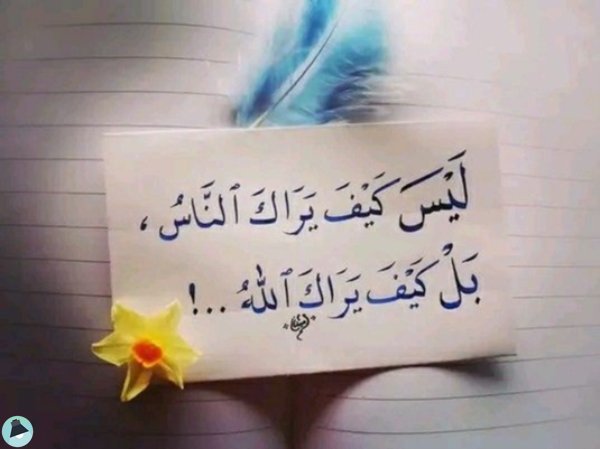 لَيْسَ كَيْفَ يَرَاكَ ٱلنَّاسُ ،
بَلْ كَيْفَ يَرَاكَ ٱللّٰهُ ...!